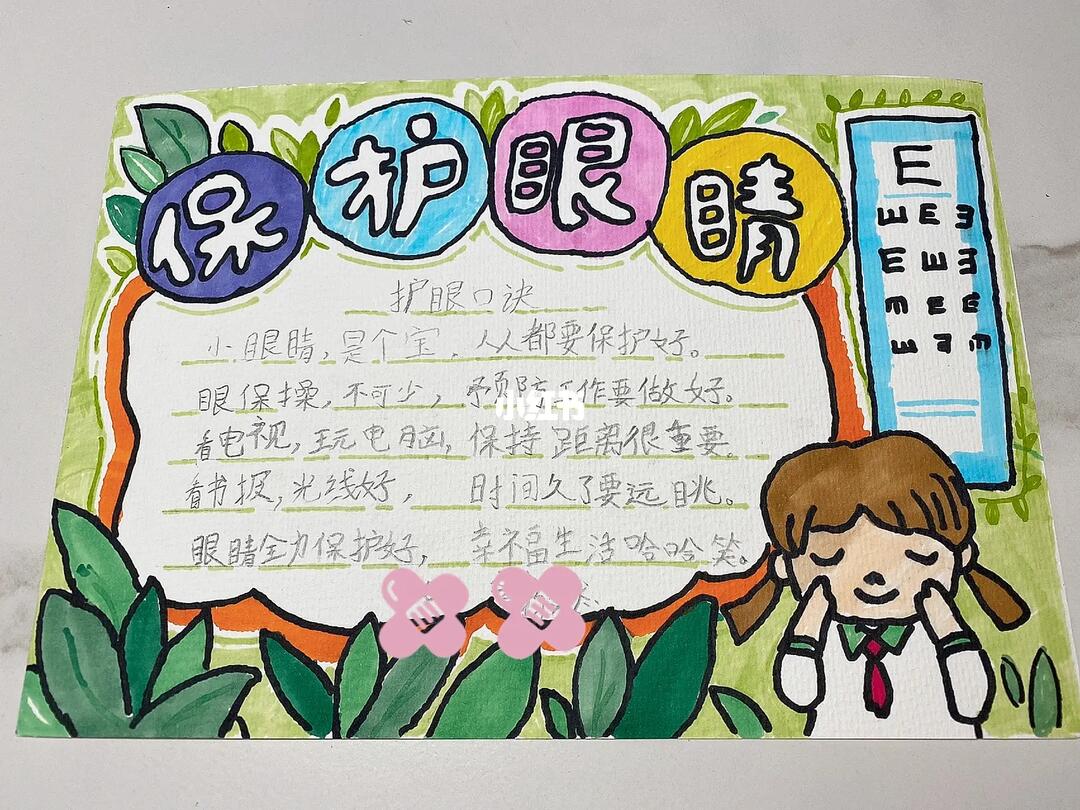 保护眼睛
护眼口诀
小眼睛,是个宝,人人都要保护好。
眼保操,不可少,预防工作要做好。
看电视,玩电脑,保持距离很重要。
看书报,光线好,时间久了要远眺。
眼睛全力保护好,幸福生活哈哈笑。
小红书
E
E E E
E E E
E E E
E E E